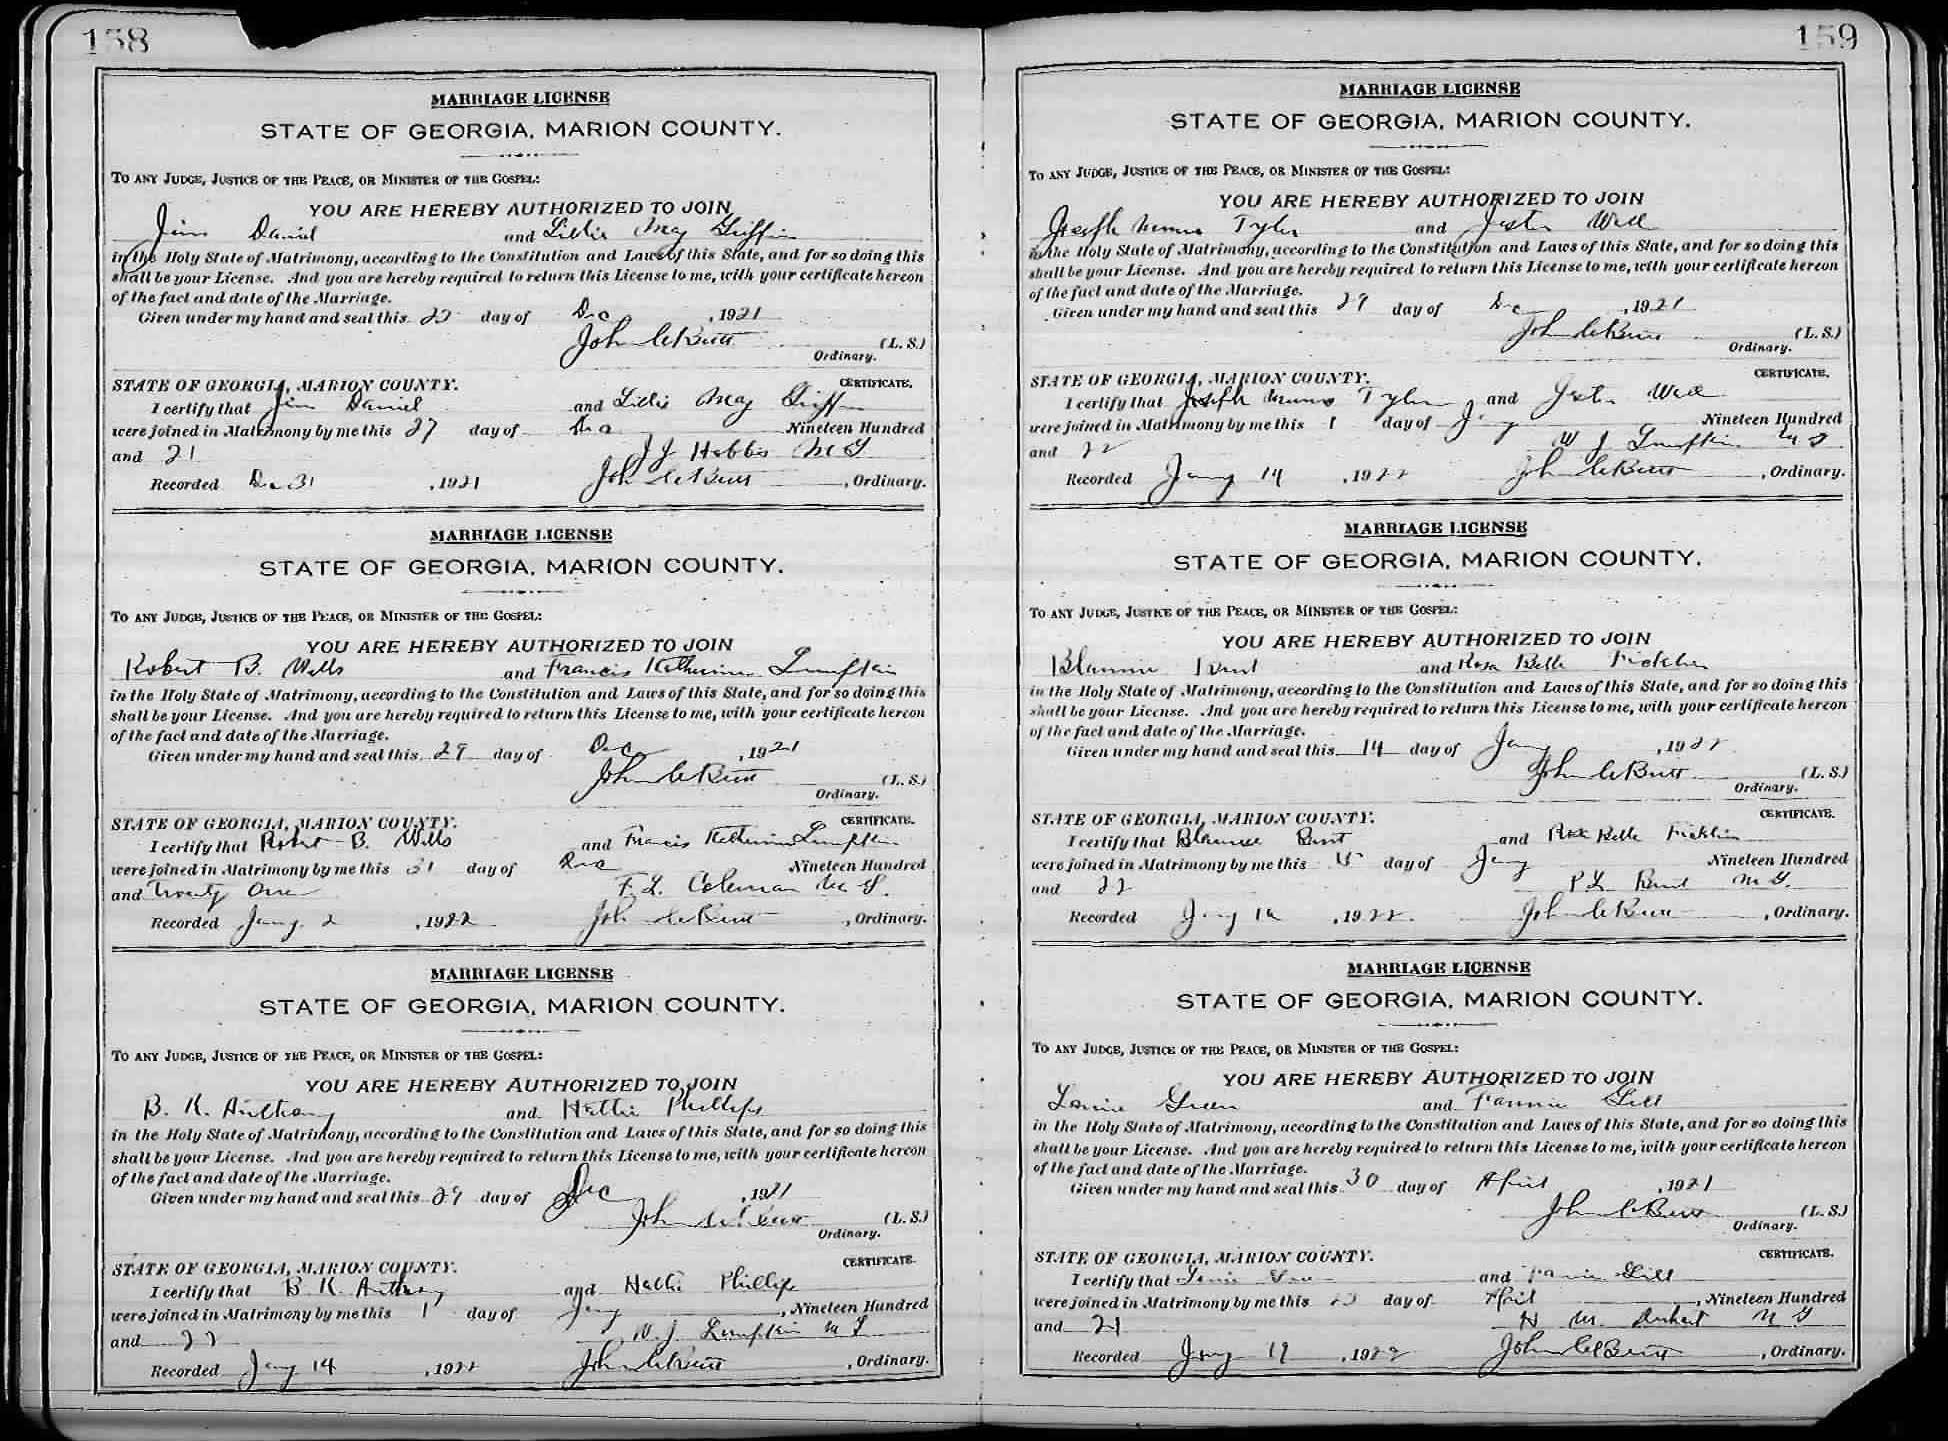 158
MARRIAGE LICENSE
STATE OF GEORGIA, MARION COUNTY.
TO ANY JUDGE, JUSTICE OF THE PEACE, OR MINISTER OF THE GOSPEL:
YOU ARE HEREBY AUTHORIZED TO JOIN
Jim Daniel and Lillie May Griffin
in the Holy State of Matrimony, according to the Constitution and Laws of this State, and for so doing this
shall be your License. And you are hereby required to return this License to me, with your certificate hereon
of the fact and date of the Marriage.
Given under my hand and seal this day of Dec, 1921
John C Butt (L. S.)
Ordinary.
STATE OF GEORGIA, MARION COUNTY. CERTIFICATE.
I certify that Jim Daniel and Lillie May Griffin
were joined in Matrimony by me this 27 day of Dec Nineteen Hundred
and 21 J J Hobbs M G
Recorded Dec 31, 1921 John C Butt, Ordinary.
MARRIAGE LICENSE
STATE OF GEORGIA, MARION COUNTY.
TO ANY JUDGE, JUSTICE OF THE PEACE, OR MINISTER OF THE GOSPEL:
YOU ARE HEREBY AUTHORIZED TO JOIN
Robert B. Wells and Francis Katherine Lumpkin
in the Holy State of Matrimony, according to the Constitution and Laws of this State, and for so doing this
shall be your License. And you are hereby required to return this License to me, with your certificate hereon
of the fact and date of the Marriage.
Given under my hand and seal this 29 day of Dec, 1921
John C Butt (L. S.)
Ordinary.
STATE OF GEORGIA, MARION COUNTY. CERTIFICATE.
I certify that Robert B. Wells and Francis Katherine Lumpkin
were joined in Matrimony by me this 31 day of Dec Nineteen Hundred
and Twenty One F. L. Coleman M G.
Recorded Jany. 2, 1922 John C Butt, Ordinary.
MARRIAGE LICENSE
STATE OF GEORGIA, MARION COUNTY.
TO ANY JUDGE, JUSTICE OF THE PEACE, OR MINISTER OF THE GOSPEL:
YOU ARE HEREBY AUTHORIZED TO JOIN
B. K. Anthony and Hattie Phillips
in the Holy State of Matrimony, according to the Constitution and Laws of this State, and for so doing this
shall be your License. And you are hereby required to return this License to me, with your certificate hereon
of the fact and date of the Marriage.
Given under my hand and seal this 29 day of Dec, 1921
John C Butt (L. S.)
Ordinary.
STATE OF GEORGIA, MARION COUNTY. CERTIFICATE.
I certify that B. K. Anthony and Hattie Phillips
were joined in Matrimony by me this 1 day of Jany, Nineteen Hundred
and 22 W. J. Lumpkin M G
Recorded Jany 14, 1922 John C Butt, Ordinary.
159
MARRIAGE LICENSE
STATE OF GEORGIA, MARION COUNTY.
TO ANY JUDGE, JUSTICE OF THE PEACE, OR MINISTER OF THE GOSPEL:
YOU ARE HEREBY AUTHORIZED TO JOIN
Joseph Tyler and Jester
in the Holy State of Matrimony, according to the Constitution and Laws of this State, and for so doing this
shall be your License. And you are hereby required to return this License to me, with your certificate hereon
of the fact and date of the Marriage.
Given under my hand and seal this 29 day of Dec, 1921
John C Butt (L. S.)
Ordinary.
STATE OF GEORGIA, MARION COUNTY. CERTIFICATE.
I certify that Joseph Tyler and Jester
were joined in Matrimony by me this 1 day of Jany Nineteen Hundred
and 22 W J Lumpkin M G
Recorded Jany 14, 1922 John C Butt, Ordinary.
MARRIAGE LICENSE
STATE OF GEORGIA, MARION COUNTY.
TO ANY JUDGE, JUSTICE OF THE PEACE, OR MINISTER OF THE GOSPEL:
YOU ARE HEREBY AUTHORIZED TO JOIN
and Rosa Belle Ficklin
in the Holy State of Matrimony, according to the Constitution and Laws of this State, and for so doing this
shall be your License. And you are hereby required to return this License to me, with your certificate hereon
of the fact and date of the Marriage.
Given under my hand and seal this 14 day of Jany, 1922
John C Butt (L. S.)
Ordinary.
STATE OF GEORGIA, MARION COUNTY. CERTIFICATE.
I certify that and Rosa Belle Ficklin
were joined in Matrimony by me this 15 day of Jany Nineteen Hundred
and 22 M G.
Recorded Jany, 1922. John C Butt, Ordinary.
MARRIAGE LICENSE
STATE OF GEORGIA, MARION COUNTY.
TO ANY JUDGE, JUSTICE OF THE PEACE, OR MINISTER OF THE GOSPEL:
YOU ARE HEREBY AUTHORIZED TO JOIN
Green and Fannie Gill
in the Holy State of Matrimony, according to the Constitution and Laws of this State, and for so doing this
shall be your License. And you are hereby required to return this License to me, with your certificate hereon
of the fact and date of the Marriage.
Given under my hand and seal this 30 day of April, 1921
John C Butt (L. S.)
Ordinary.
STATE OF GEORGIA, MARION COUNTY. CERTIFICATE.
I certify that and Fannie Gill
were joined in Matrimony by me this day of April, Nineteen Hundred
and 21 M G
Recorded Jany, 1922 John C Butt, Ordinary.